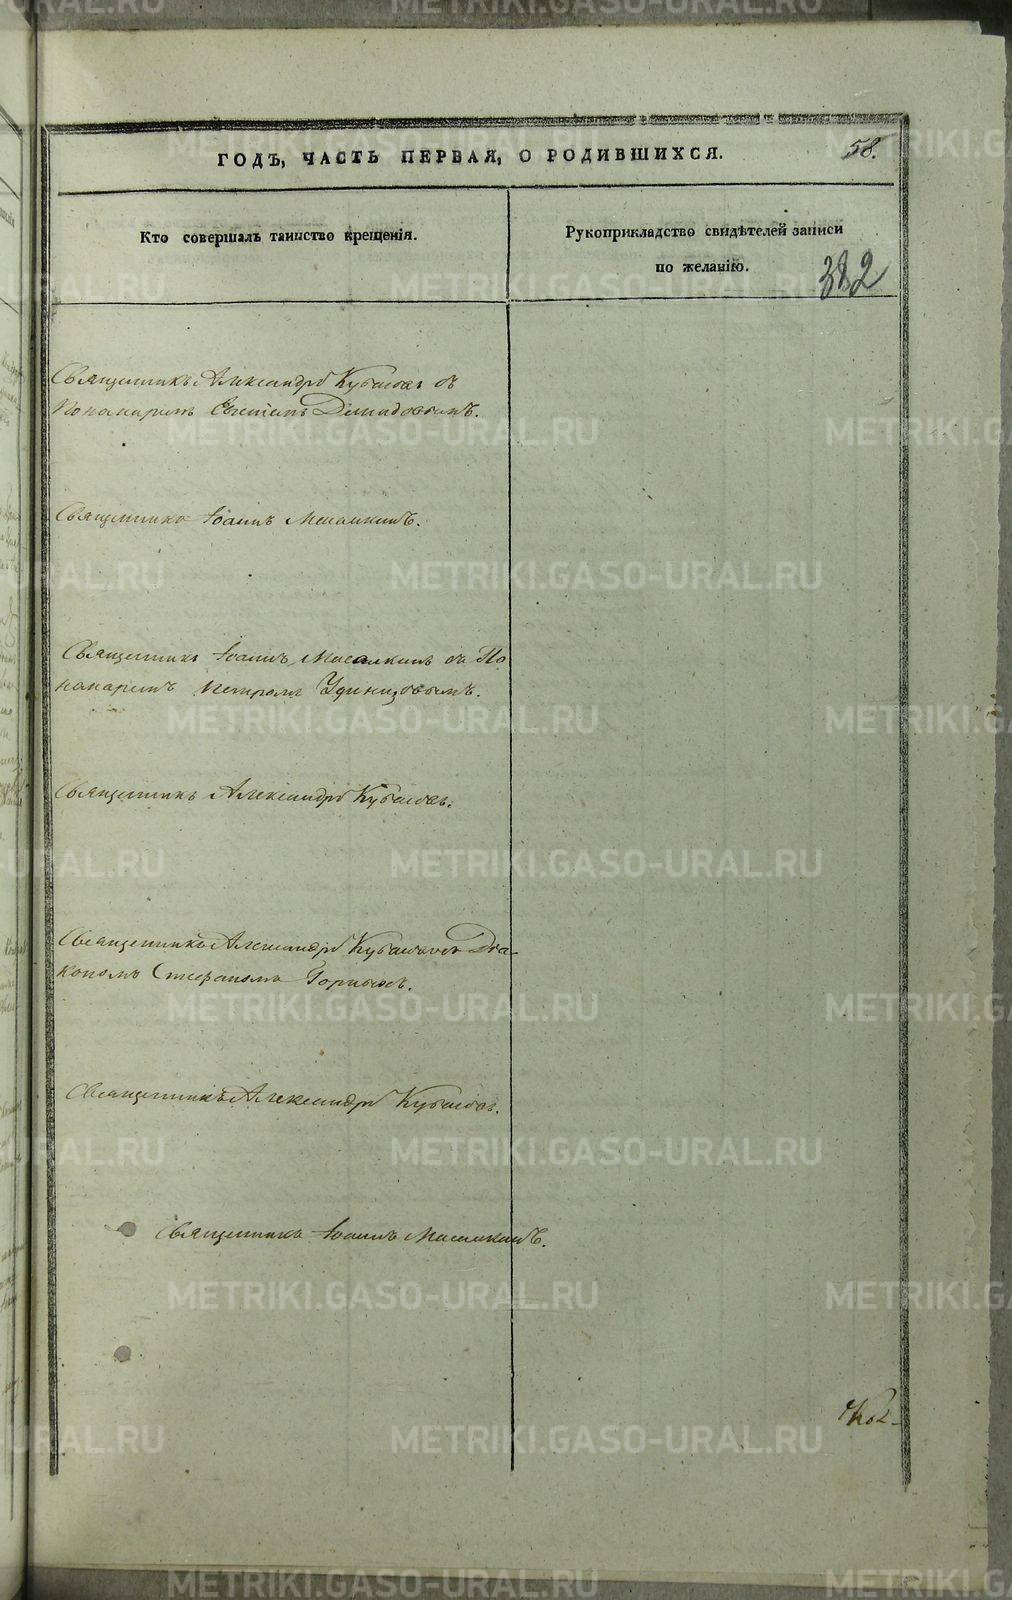 ГОДЪ, ЧАСТЬ ПЕРВАЯ, О РОДИВШИХСЯ.
58.
Кто совершалъ таинство крещенія.
Рукоприкладство свидѣтелей записи
по желанію.
382
Священникъ Александръ Кубасовъ съ
Пономаремъ Демидовымъ.
Священникъ Іоаннъ
Священникъ Іоаннъ съ По
номаремъ Петромъ Удинцовымъ.
Священникъ Александръ Кубасовъ.
Священникъ Александръ Кубасовъ съ Діа-
кономъ Стефаномъ
Священникъ Александръ Кубасовъ.
Священникъ Іоаннъ
METRIKI.GASO-URAL.RU